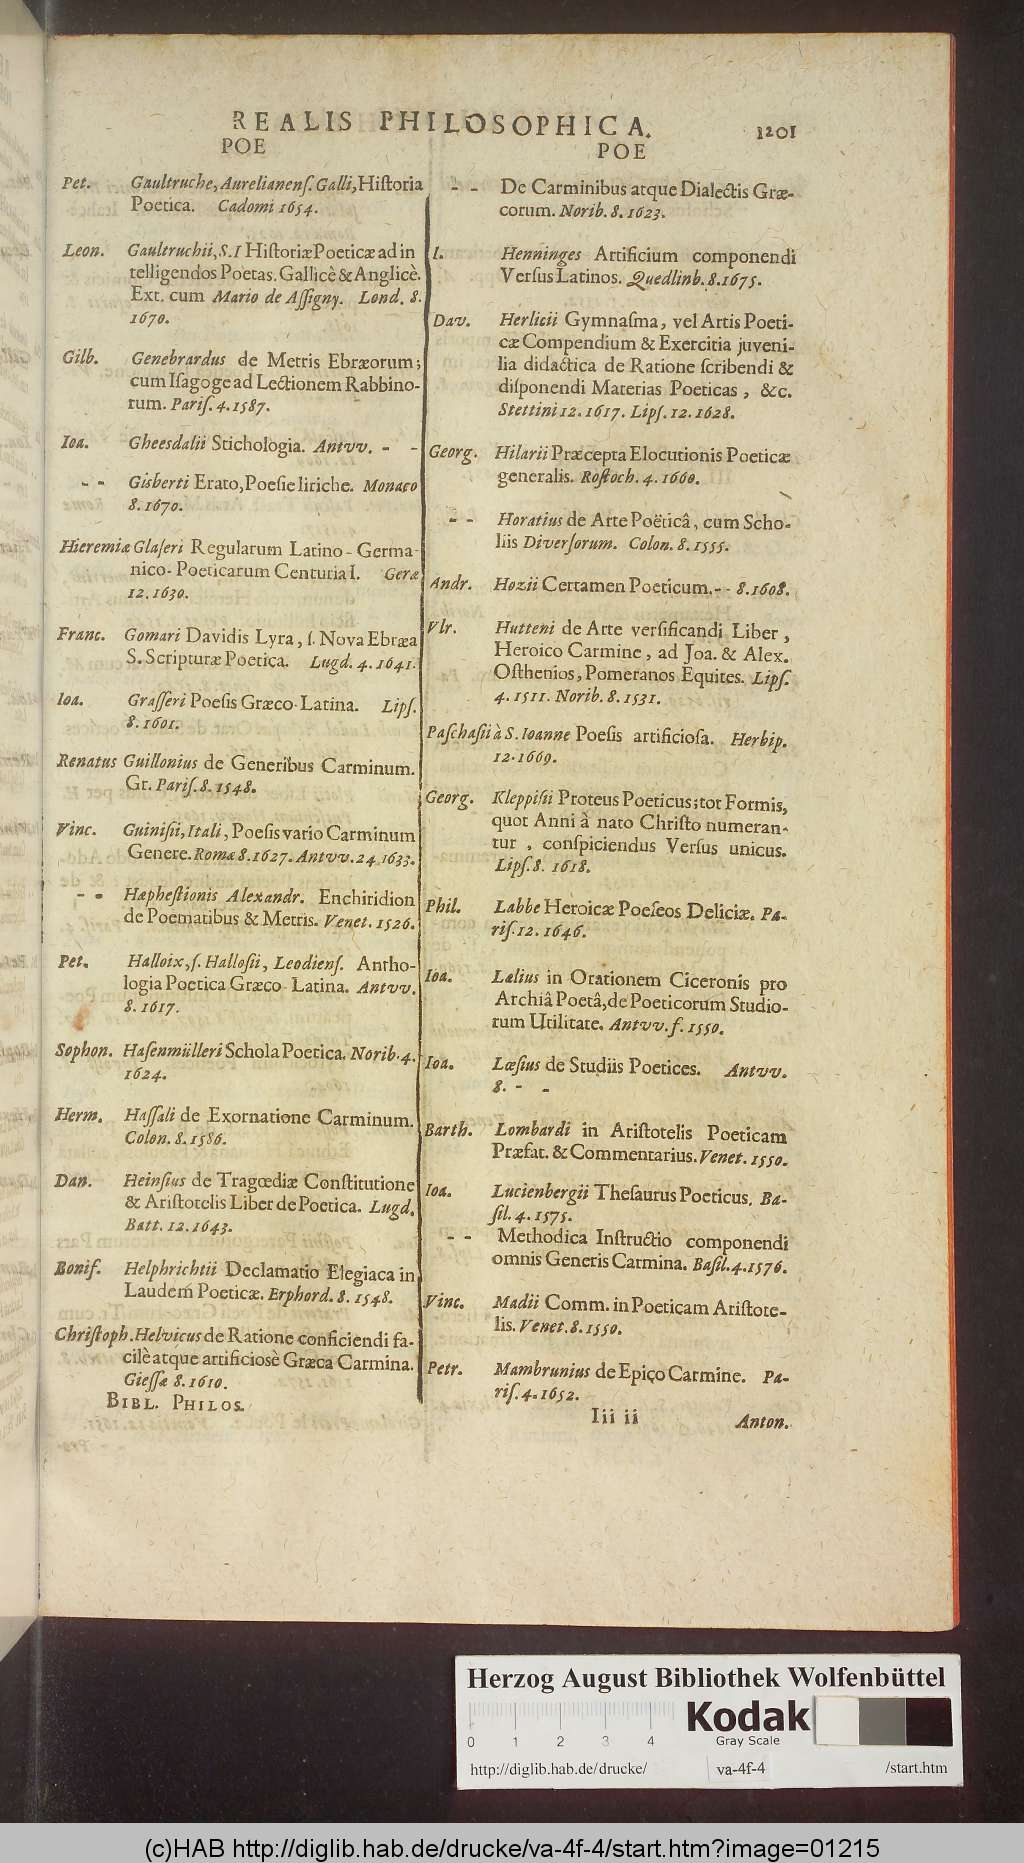 REALIS PHILOSOPHICA. 1201
POE
Pet. Gaultruche, Aurelianenſ. Galli, Hiſtoria
Poetica. Cadomi 1654.
Leon. Gaultruchii, S. I Hiſtoriæ Poeticæ ad in
telligendos Poetas. Gallicè & Anglicè.
Ext. cum Mario de Aſſigny. Lond. 8.
1670.
Gilb. Genebrardus de Metris Ebræorum;
cum Iſagoge ad Lectionem Rabbino-
rum. Pariſ. 4. 1587.
Ioa. Gheesdalii Stichologia. Antvv. - -
- - Gisberti Erato, Poeſie liriche. Monaco
8. 1670.
Hieremiæ Glaſeri Regularum Latino-Germa-
nico-Poeticarum Centuria I. Geræ
12. 1630.
Franc. Gomari Davidis Lyra, ſ. Nova Ebræa
S. Scripturæ Poetica. Lugd. 4. 1641.
Ioa. Graſſeri Poeſis Græco-Latina. Lipſ.
8. 1601.
Renatus Guillonius de Generibus Carminum.
Gr. Pariſ. 8. 1548.
Vinc. Guiniſii, Itali, Poeſis vario Carminum
Genere. Romæ 8. 1627. Antvv. 24 1633.
- - Hæpheſtionis Alexandr. Enchiridion
de Poematibus & Metris. Venet. 1526.
Pet. Halloix, ſ. Halloſii, Leodienſ. Antho-
logia Poetica Græco-Latina. Antvv.
8. 1617.
Sophon. Haſenmülleri Schola Poetica. Norib. 4.
1624.
Herm. Haſſali de Exornatione Carminum.
Colon. 8. 1586.
Dan. Heinſius de Tragœdiæ Conſtitutione
& Ariſtotelis Liber de Poetica. Lugd.
Batt. 12. 1643.
Bonif. Helphrichtii Declamatio Elegiaca in
Laudem Poeticæ. Erphord. 8. 1548.
Chriſtoph. Helvicus de Ratione conficiendi fa-
cilè atque artificiosè Græca Carmina.
Gieſſæ 8. 1610.
BIBL. PHILOS.
POE
- - De Carminibus atque Dialectis Græ-
corum. Norib. 8. 1623.
I. Henninges Artificium componendi
Verſus Latinos. Quedlinb. 8. 1675.
Dav. Herlicii Gymnaſma, vel Artis Poeti-
cæ Compendium & Exercitia juveni-
lia didactica de Ratione ſcribendi &
diſponendi Materias Poeticas, &c.
Stettini 12. 1617. Lipſ. 12. 1628.
Georg. Hilarii Præcepta Elocutionis Poeticæ
generalis. Roſtoch. 4. 1660.
- - Horatius de Arte Poëticâ, cum Scho-
liis Diverſorum. Colon. 8. 1555.
Andr. Hozii Certamen Poeticum. - - 8. 1608.
Vlr. Hutteni de Arte verſificandi Liber,
Heroico Carmine, ad Joa. & Alex.
Oſthenios, Pomeranos Equites. Lipſ.
4. 1511. Norib. 8. 1531.
Paſchaſii à S. Ioanne Poeſis artificioſa. Herbip.
12. 1669.
Georg. Kleppiſii Proteus Poeticus; tot Formis,
quot Anni à nato Chriſto numeran-
tur, conſpiciendus Verſus unicus.
Lipſ. 8. 1618.
Phil. Labbe Heroicæ Poeſeos Deliciæ. Pa-
riſ. 12. 1646.
Ioa. Lælius in Orationem Ciceronis pro
Archiâ Poetâ, de Poeticorum Studio-
rum Utilitate. Antvv. f. 1550.
Ioa. Lœſius de Studiis Poetices. Antvv.
8. - -
Barth. Lombardi in Ariſtotelis Poeticam
Præfat. & Commentarius. Venet. 1550.
Ioa. Lucienbergii Theſaurus Poeticus. Ba-
ſil. 4. 1575.
- - Methodica Inſtructio componendi
omnis Generis Carmina. Baſil. 4. 1576.
Vinc. Madii Comm. in Poeticam Ariſtote-
lis. Venet. 8. 1550.
Petr. Mambrunius de Epico Carmine. Pa-
riſ. 4. 1652.
Iii ii Anton.
Herzog August Bibliothek Wolfenbüttel
0 1 2 3 4
Kodak
Gray Scale
http://diglib.hab.de/drucke/ va-4f-4 /start.htm
(c)HAB http://diglib.hab.de/drucke/va-4f-4/start.htm?image=01215